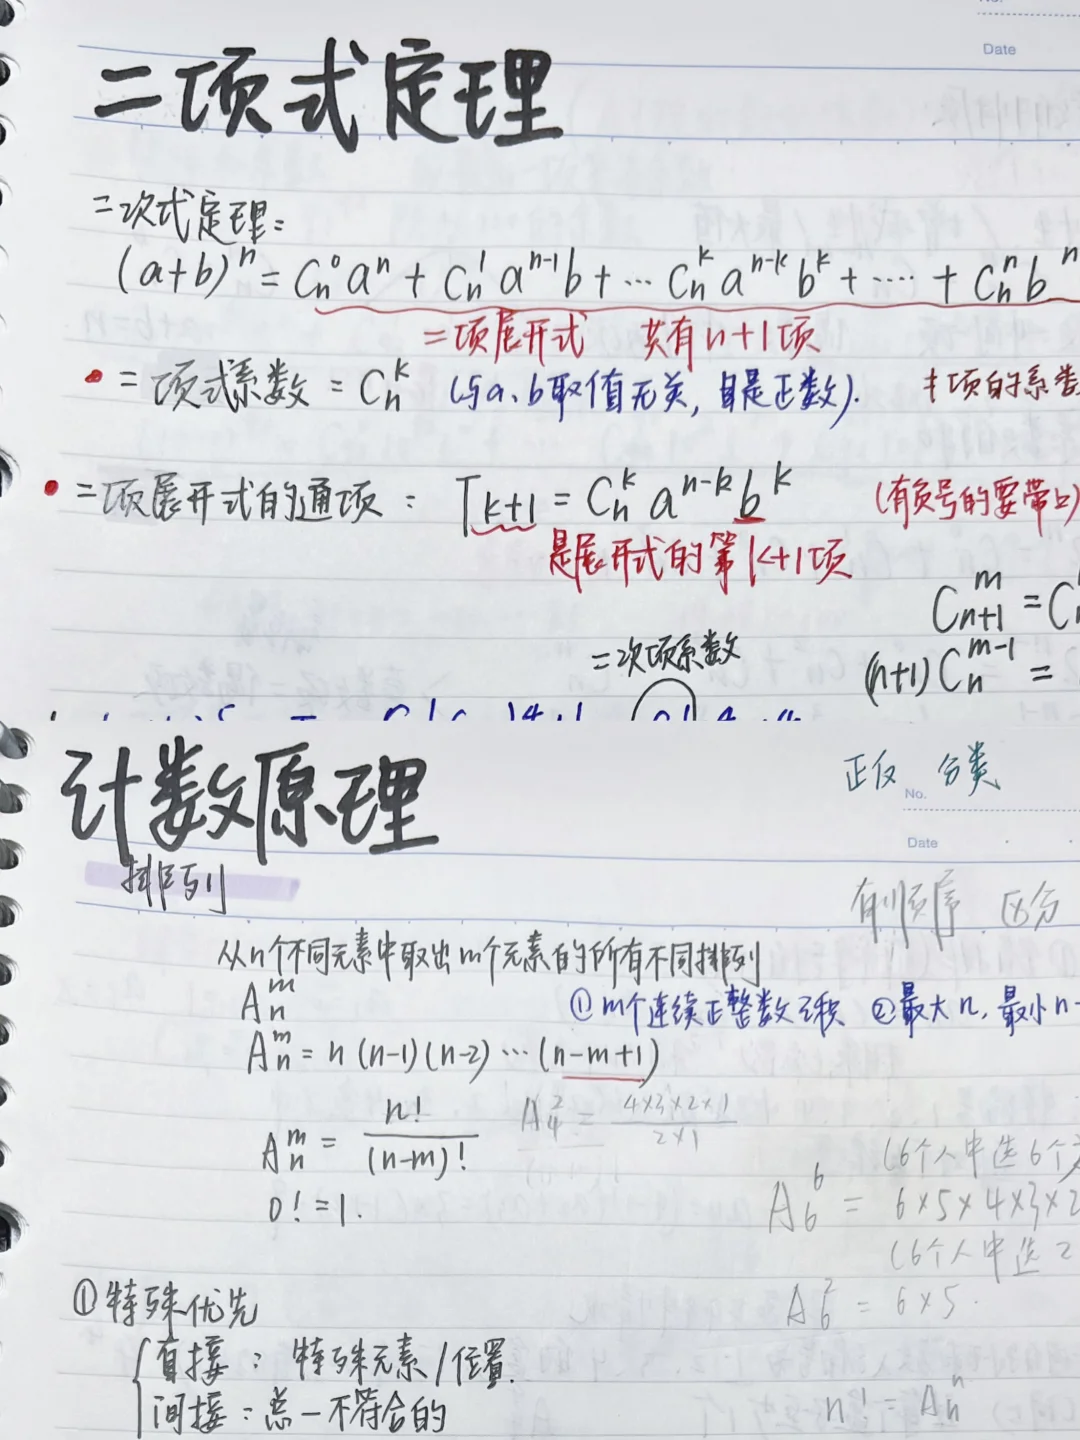 Date
二项式定理
二次式定理:
(a+b)^n = C_n^0 a^n + C_n^1 a^{n-1} b + … C_n^k a^{n-k} b^k + …… + C_n^n b^n
二项展开式 共有n+1项
二项式系数 = C_n^k (与a、b取值无关, 且是正数).
二项展开式的通项: T_{k+1} = C_n^k a^{n-k} b^k (有负号的要带上)
是展开式的第k+1项
C_{n+1}^m = C
二次项系数
(n+1) C_n^{m-1} =
计数原理
正反 分类
No.
Date
排列
有顺序 区分
从n个不同元素中取出m个元素的所有不同排列
A_n^m
①m个连续正整数之积 ②最大n, 最小n-
A_n^m = n (n-1) (n-2) … (n-m+1)
A_n^m = n! / (n-m)! A_4^2 = 4×3×2×1 / 2×1
(6个人中选6个
0! = 1.
A_6^6 = 6×5×4×3×2
(6个人中选2
①特殊优先
A_6^2 = 6×5.
直接: 特殊元素/位置.
间接: 总-不符合的
n! = A_n^n